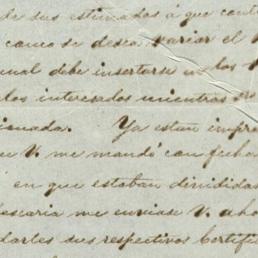 de sus estimadas á que cont
causa se desea variar el
cual debe insertarse en los
los interesados mientras
ionada. Ya estan impre
V. me mandó con fecha
en que estaban divididas
searia me enviase V. aho
darles sus respectivos Certifi